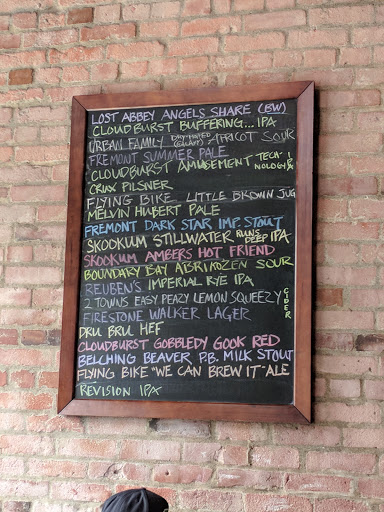 LOST ABBEY ANGELS SHARE (BW)
CLOUDBURST BUFFERING... IPA
URBAN FAMILY DRY-HOPPED APRICOT SOUR
FREMONT SUMMER PALE
CLOUDBURST AMUSEMENT TECH NOLOGY IPA
CRUX PILSNER
FLYING BIKE LITTLE BROWN JUG
MELVIN HUBERT PALE
FREMONT DARK STAR IMP. STOUT
SKOOKUM STILLWATER RUNS DEEP IPA
SKOOKUM AMBERS HOT FRIEND
BOUNDARY BAY ABRIKOZEN SOUR
REUBEN'S IMPERIAL RYE IPA
2 TOWNS EASY PEAZY LEMON SQUEEZY CIDER
FIRESTONE WALKER LAGER
DRU BRU HEF
CLOUDBURST GOBBLEDY GOOK RED
BELCHING BEAVER P.B. MILK STOUT
FLYING BIKE "WE CAN BREW IT" ALE
REVISION IPA